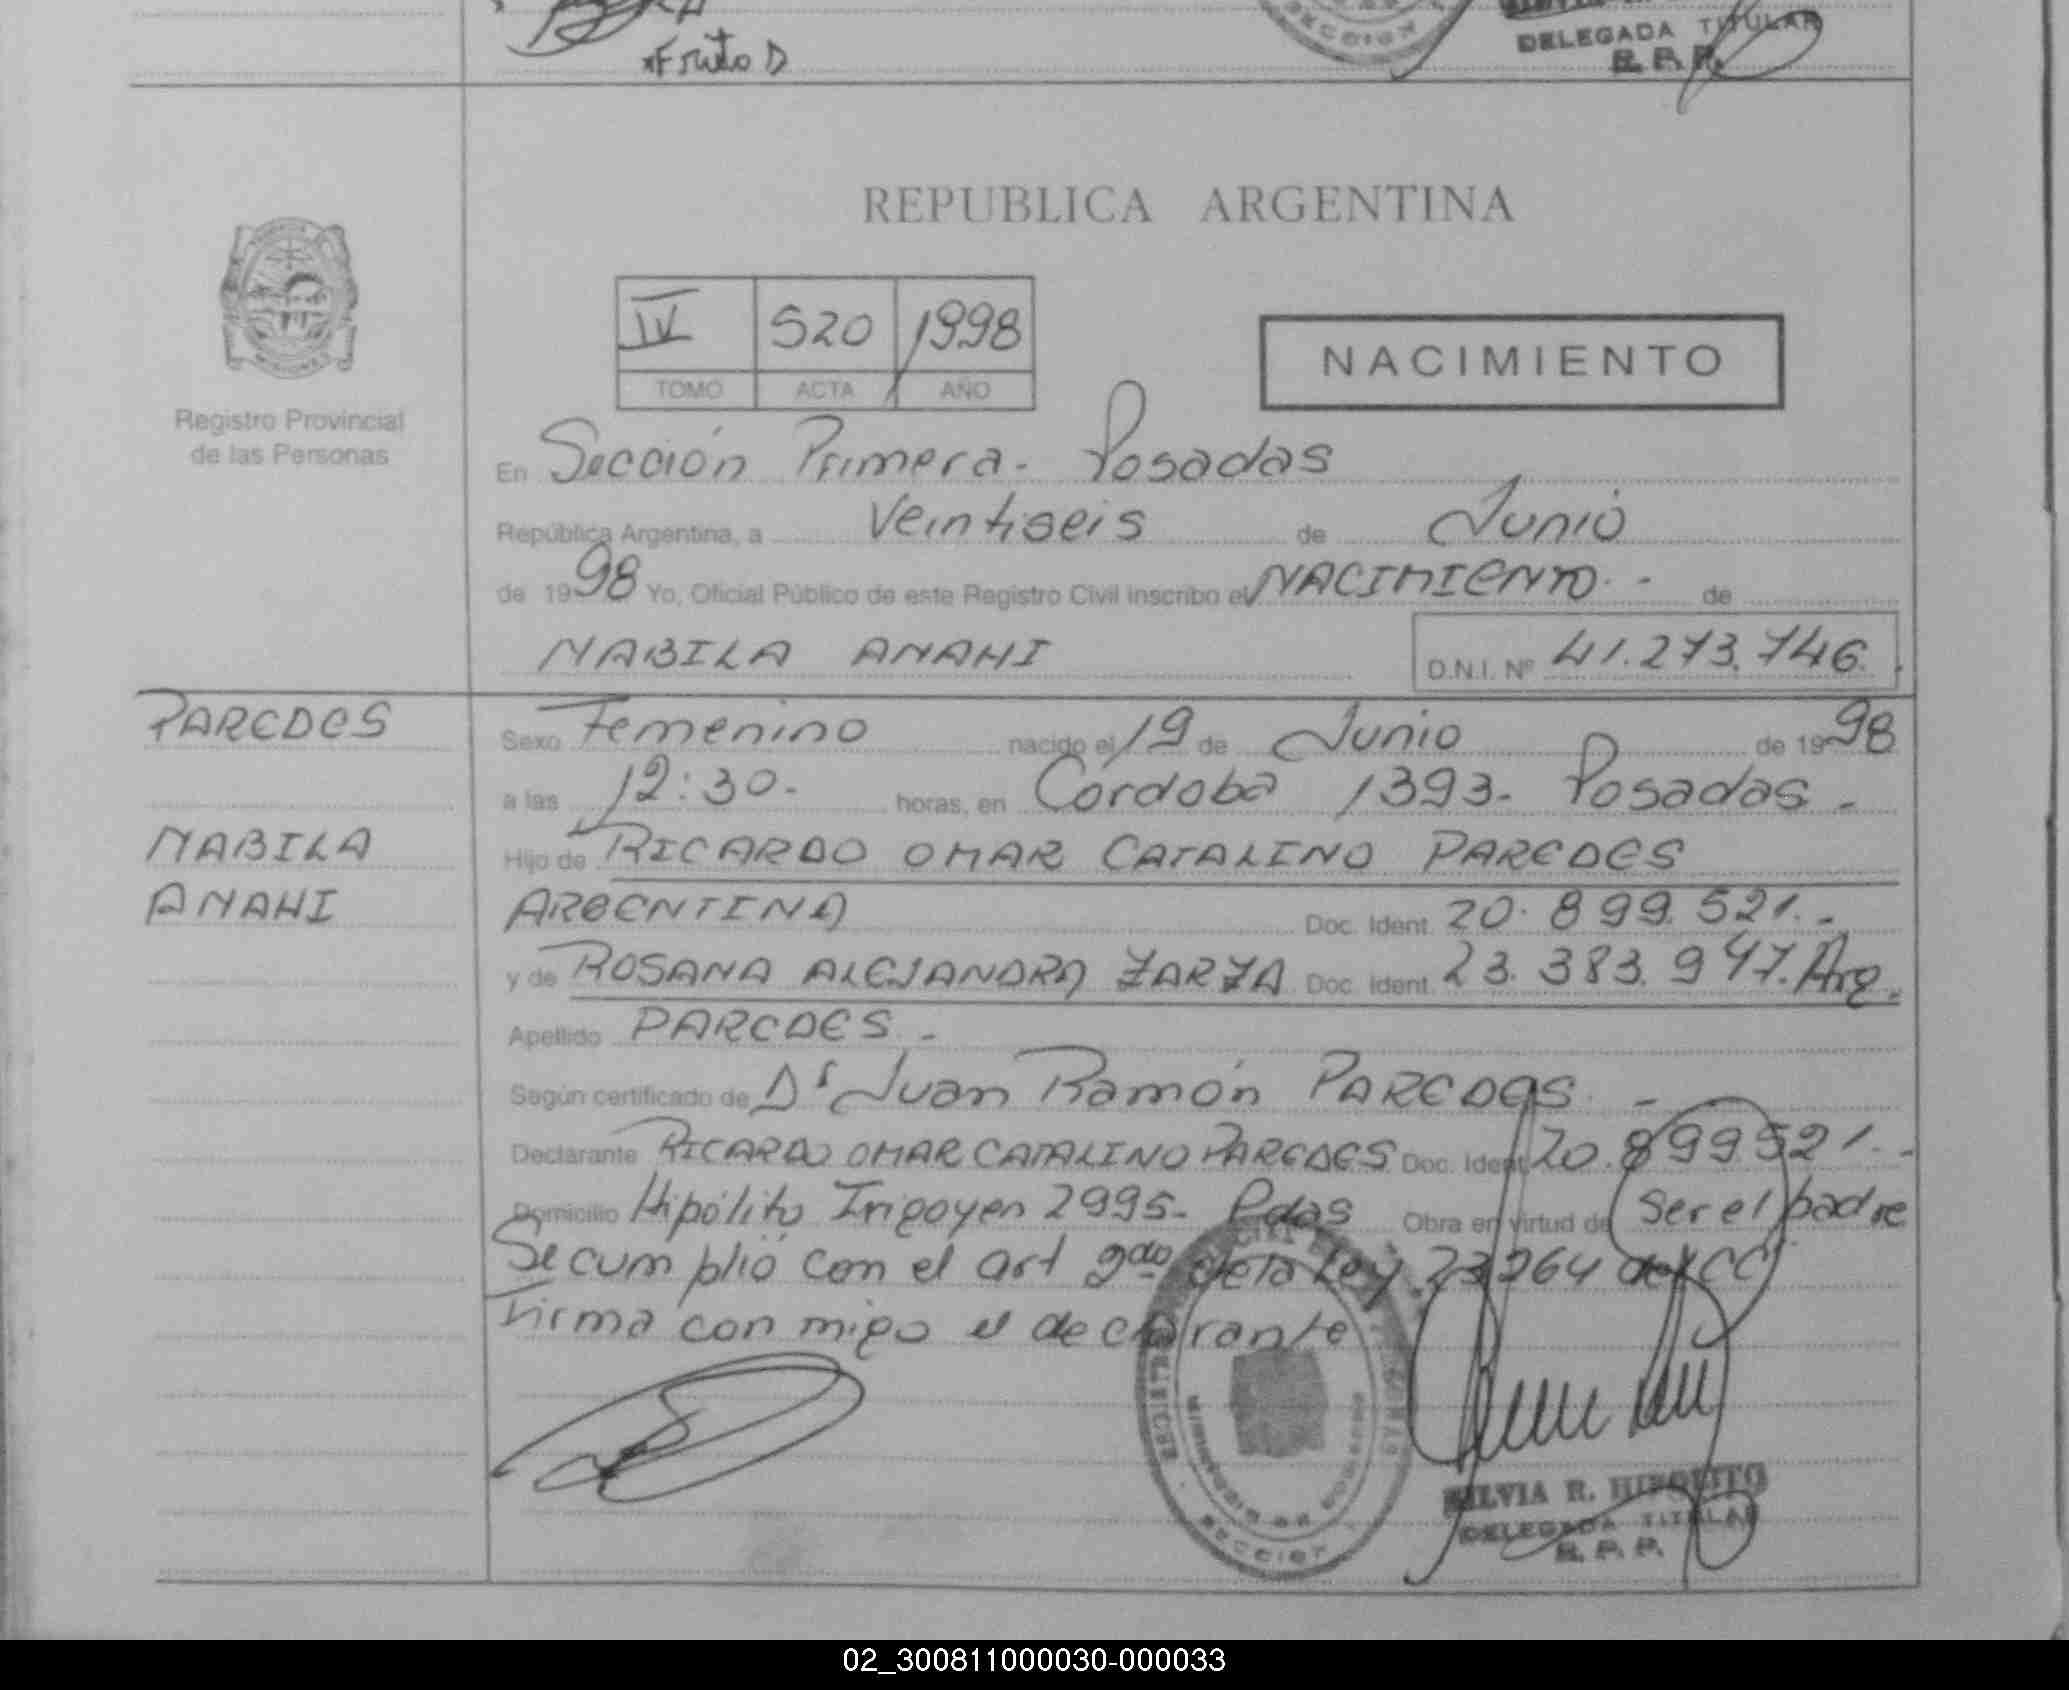 *Fruto D
SECCION
DELEGADA TITULAR
R. P. P.
REPUBLICA ARGENTINA
IV 520 1998
TOMO ACTA AÑO
NACIMIENTO
Registro Provincial
de las Personas
En Sección Primera. Posadas
República Argentina, a Veintiseis de Junio
de 1998 Yo, Oficial Público de este Registro Civil inscribo el NACIMIENTO. - de
NABILA ANAHI D.N.I. Nº 41.273.746.
PAREDES
Sexo Femenino nacido el 19 de Junio de 1998
a las 12:30. horas, en Córdoba 1393. Posadas.
NABILA
Hijo de RICARDO OMAR CATALINO PAREDES
ANAHI
ARGENTINA Doc. Ident. 20.899.521.-
y de ROSANA ALEJANDRA ZARZA Doc. Ident. 23.383.947. Arg.
Apellido PAREDES. -
Según certificado de Dr Juan Ramón PAREDES. -
Declarante RICARDO OMAR CATALINO PAREDES Doc. Ident. 20.899521.-
Domicilio Hipólito Irigoyen 2995. Pdas Obra en virtud de Ser el padre
Se cumplió con el art 2do de la Ley 23264 del CC
Firma con migo el declarante
SECCION
SILVIA R. HIPOLITO
DELEGADA TITULAR
R. P. P.
02_300811000030-000033